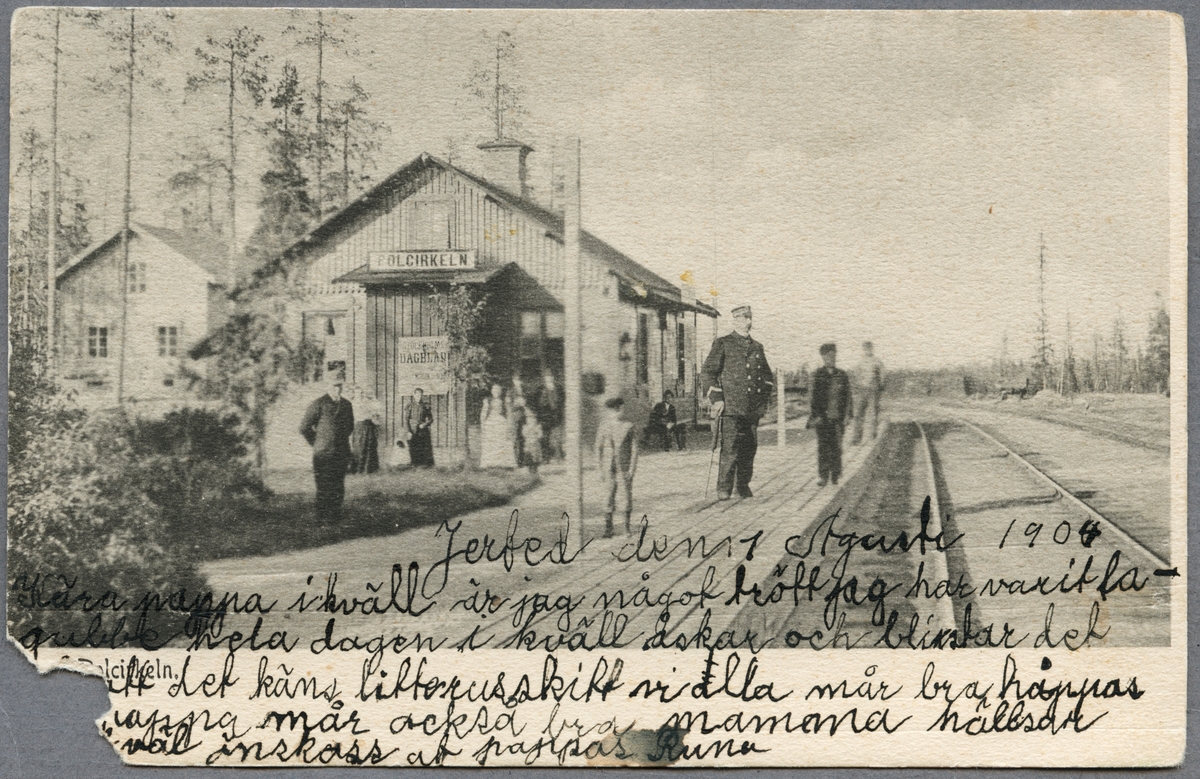 POLCIRKELN
DAGBLAD
Jerfed den 1 Agusti 1904
Kära pappa i kväll är jag något trött jag har varit la-
gubbe hela dagen i kväll åskar och blixtar det
Polcirkeln.
att det käns litterusskitt vi alla mår bra håppas
pappa mår också bra mamma hällsar
väl önskass af pappas Runa